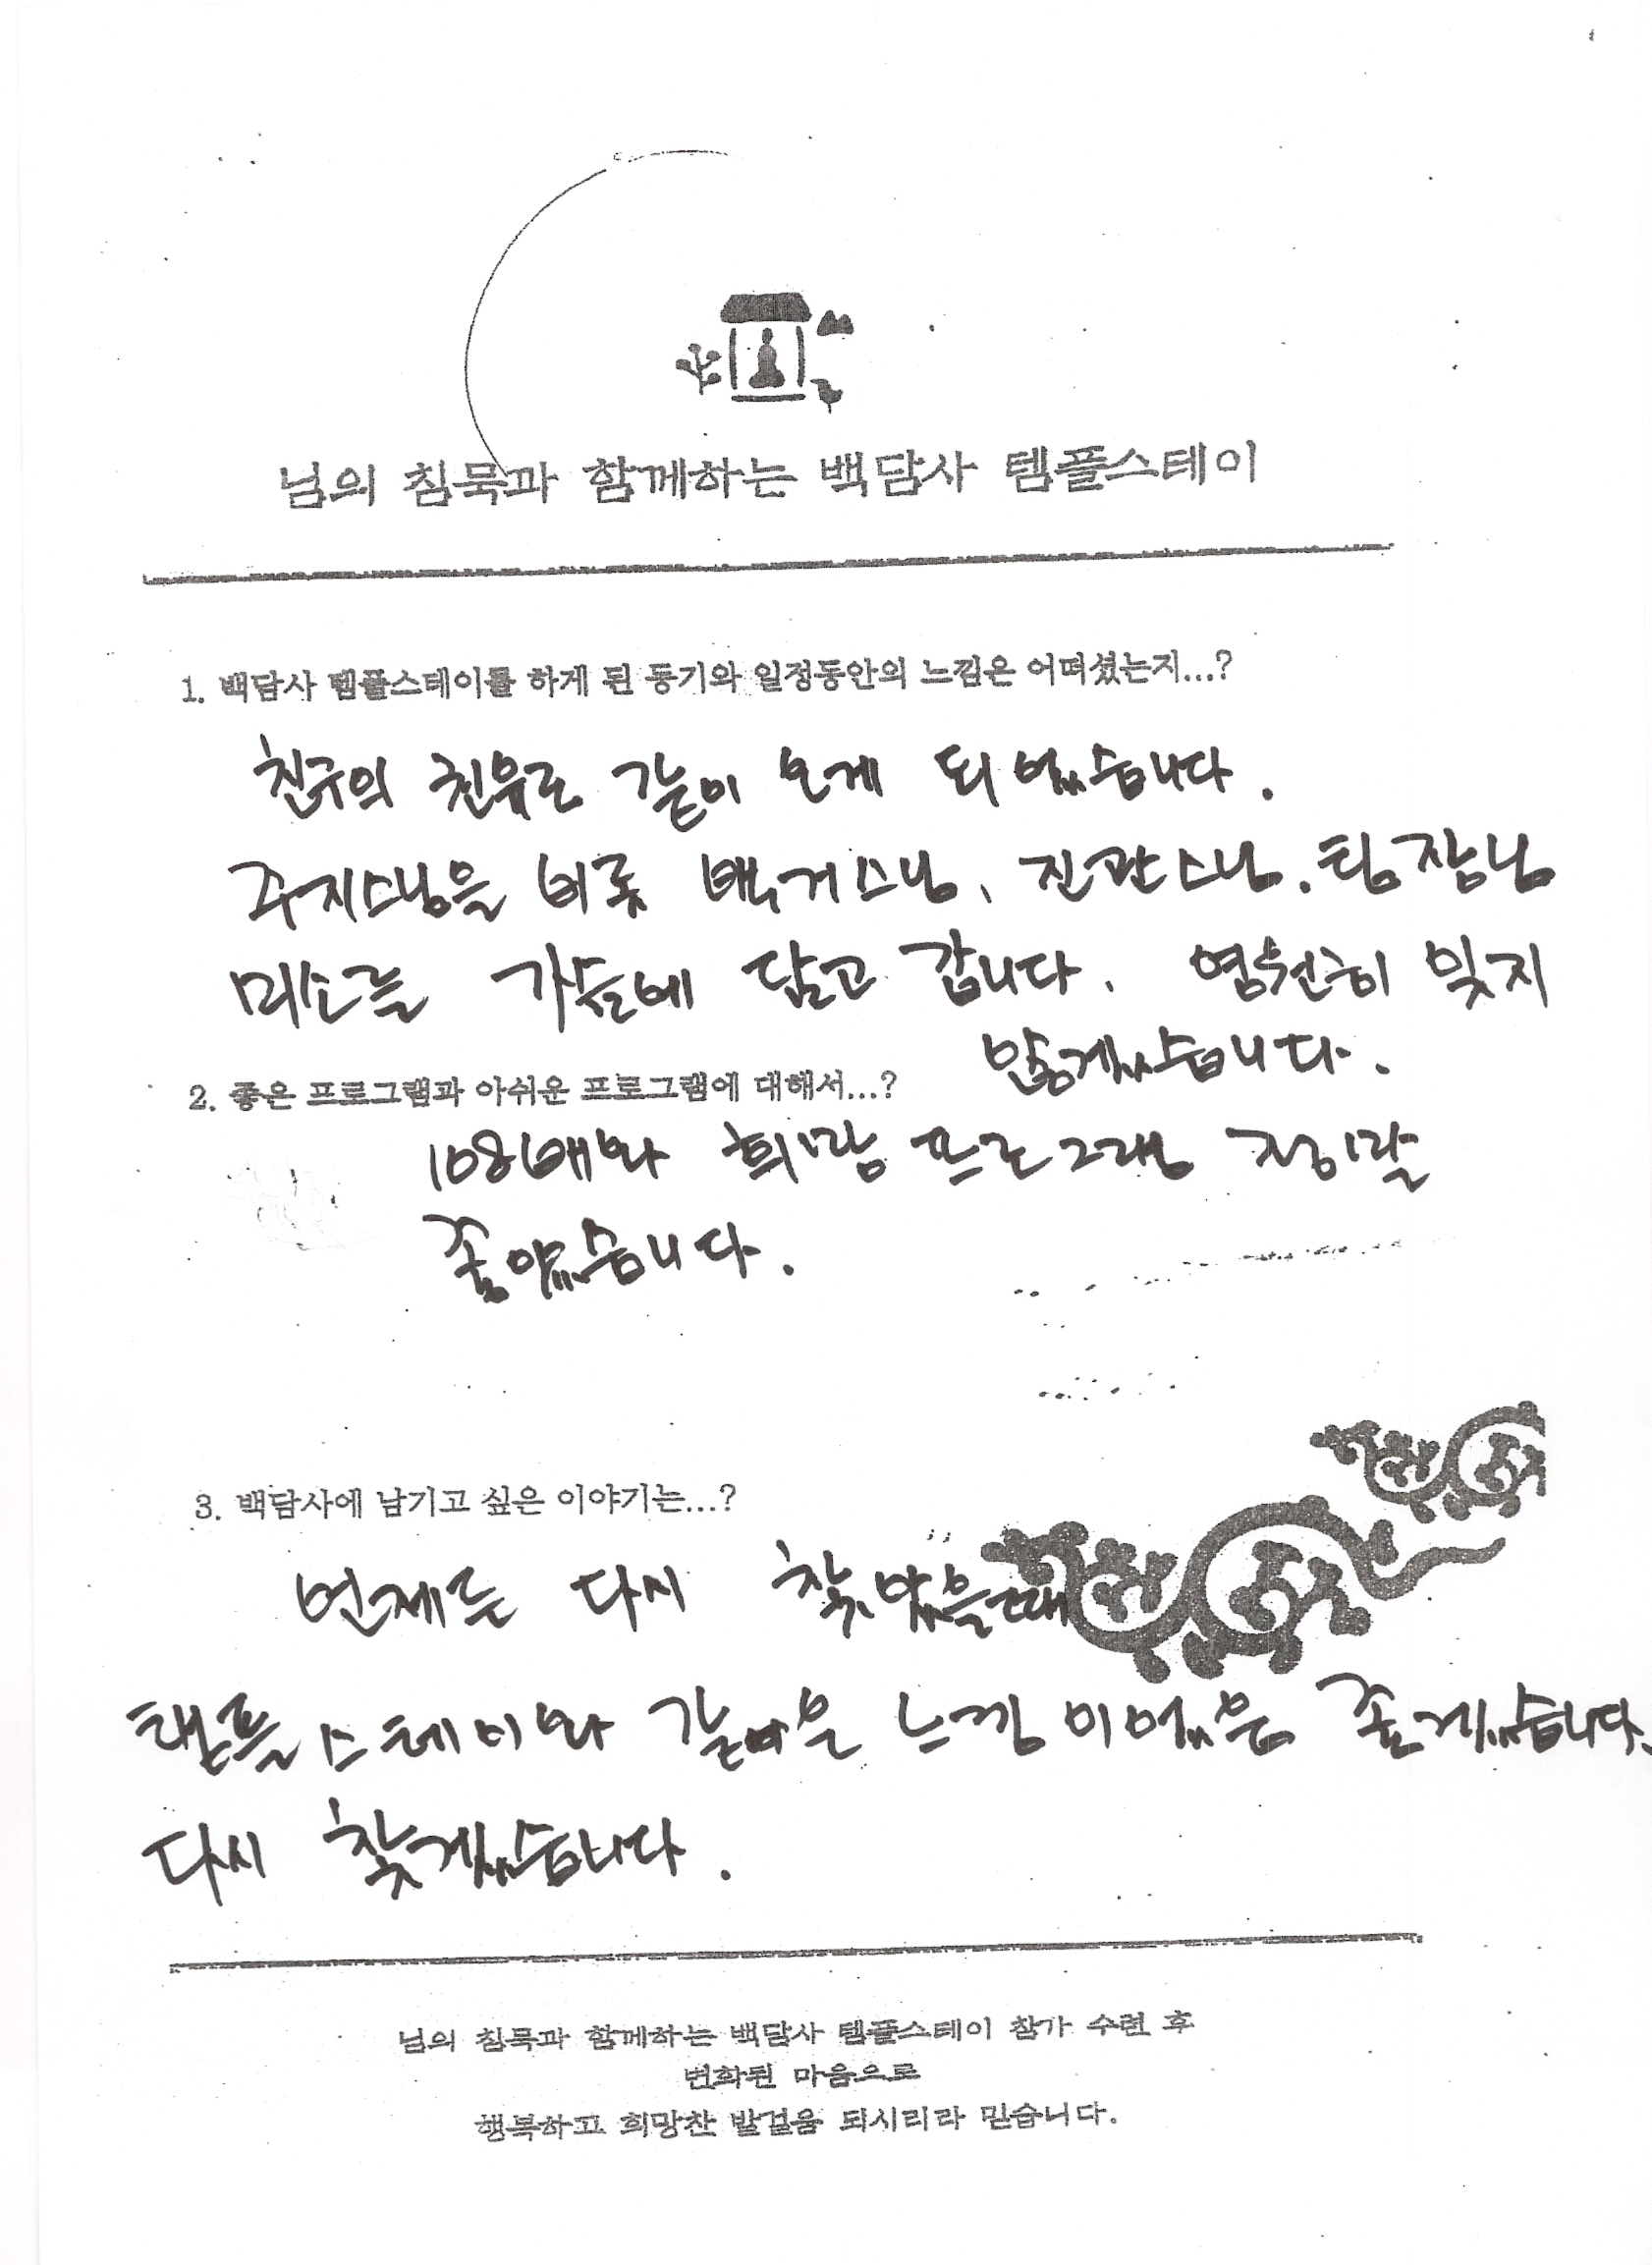 님의 침묵과 함께하는 백담사 템플스테이
1. 백담사 템플스테이를 하게 된 동기와 일정동안의 느낌은 어떠셨는지...?
친구의 친유로 같이 오게 되었습니다.
주지스님을 비롯 백거스님, 진관스님, 팀장님
미소를 가슴에 담고 갑니다. 영원히 잊지
않겠습니다.
2. 좋은 프로그램과 아쉬운 프로그램에 대해서...?
108배와 희망 프로그램 정말
좋았습니다.
3. 백담사에 남기고 싶은 이야기는...?
언제든 다시 찾았을때
탬플스테이와 같은 느낌이었음 좋겠습니다.
다시 찾겠습니다.
님의 침묵과 함께하는 백담사 템플스테이 참가 수련 후
변화된 마음으로
행복하고 희망찬 발걸음 되시리라 믿습니다.